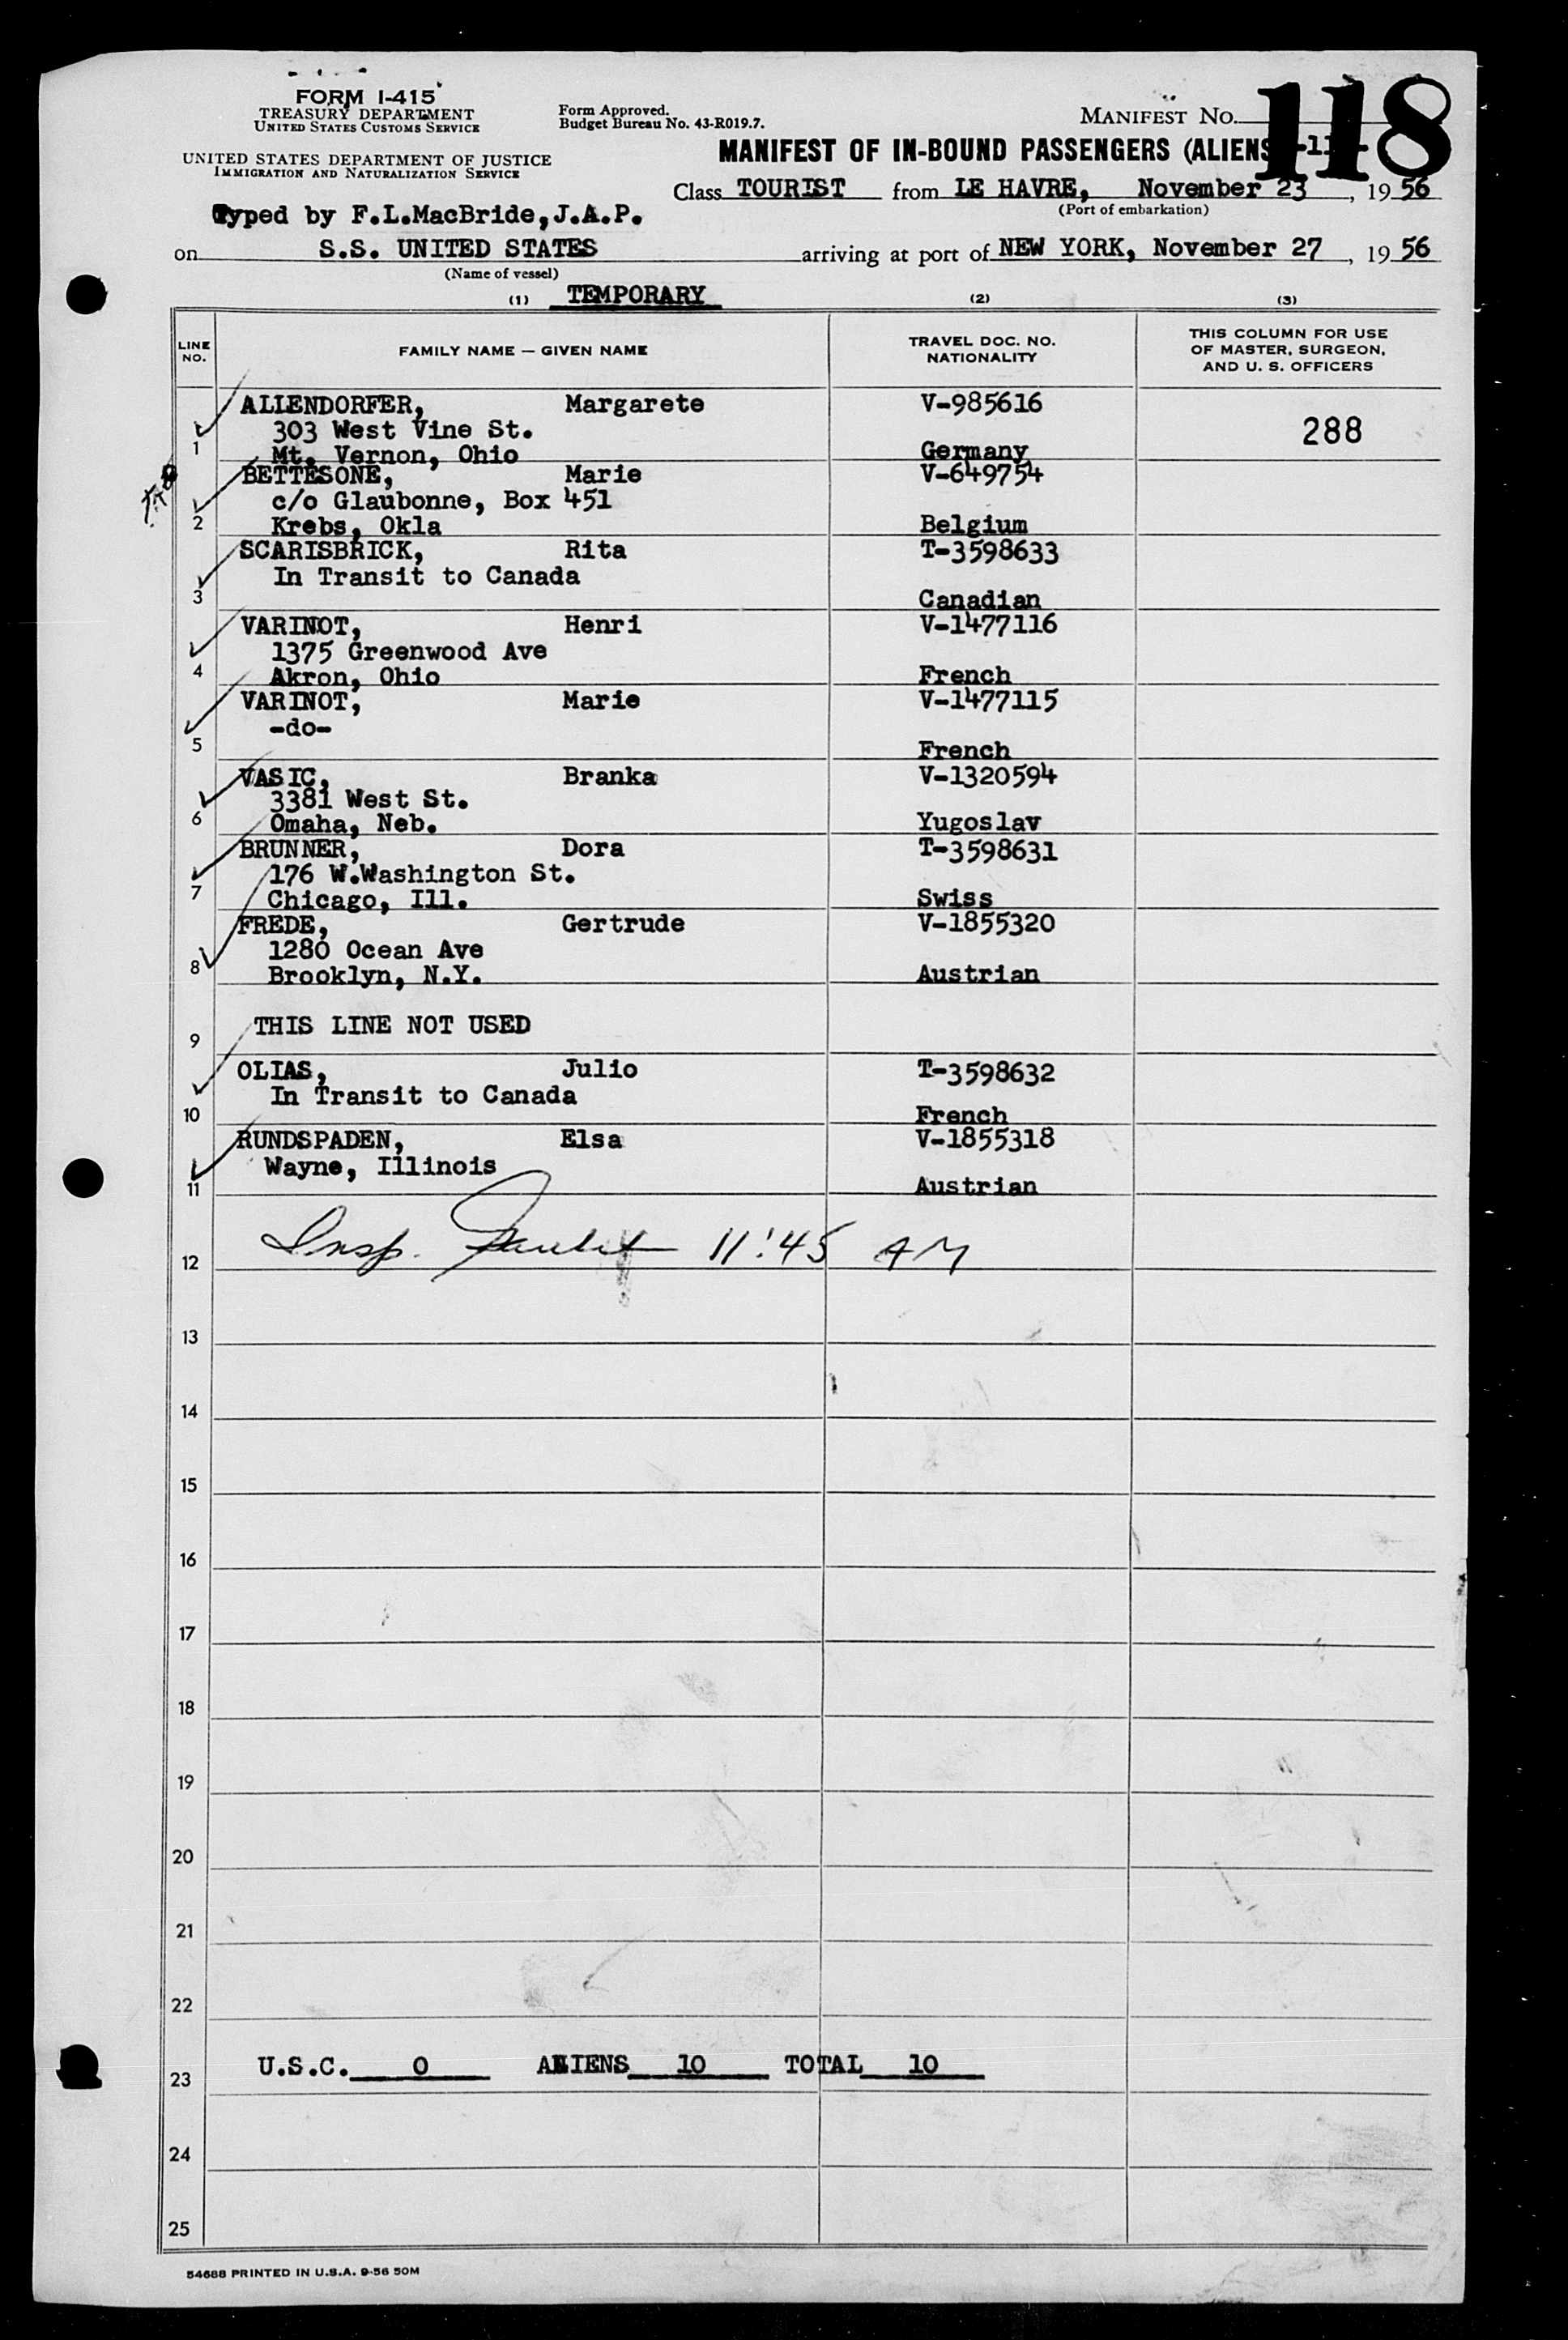 FORM I-415
TREASURY DEPARTMENT
UNITED STATES CUSTOMS SERVICE
Form Approved.
Budget Bureau No. 43-R019.7.
MANIFEST NO. 118
UNITED STATES DEPARTMENT OF JUSTICE
IMMIGRATION AND NATURALIZATION SERVICE
MANIFEST OF IN-BOUND PASSENGERS (ALIENS
Class TOURIST from LE HAVRE, November 23, 1956
(Port of embarkation)
Typed by F.L.MacBride,J.A.P.
on S.S. UNITED STATES arriving at port of NEW YORK, November 27, 1956
(Name of vessel)
(1) TEMPORARY (2) (3)
LINE NO. FAMILY NAME — GIVEN NAME TRAVEL DOC. NO. NATIONALITY THIS COLUMN FOR USE OF MASTER, SURGEON, AND U. S. OFFICERS
ALLENDORFER, Margarete V-985616
303 West Vine St. 288
1 Mt. Vernon, Ohio Germany
BETTESONE, Marie V-649754
c/o Glaubonne, Box 451
2 Krebs, Okla Belgium
SCARISBRICK, Rita T-3598633
In Transit to Canada
3 Canadian
VARINOT, Henri V-1477116
1375 Greenwood Ave
4 Akron, Ohio French
VARINOT, Marie V-1477115
-do-
5 French
VASIC, Branka V-1320594
3381 West St.
6 Omaha, Neb. Yugoslav
BRUNNER, Dora T-3598631
176 W.Washington St.
7 Chicago, Ill. Swiss
FREDE, Gertrude V-1855320
1280 Ocean Ave
8 Brooklyn, N.Y. Austrian
THIS LINE NOT USED
9
OLIAS, Julio T-3598632
In Transit to Canada
10 French
RUNDSPADEN, Elsa V-1855318
Wayne, Illinois
11 Austrian
12 Insp. 11:45 AM
13
14
15
16
17
18
19
20
21
22
23 U.S.C. 0 ALIENS 10 TOTAL 10
24
25
54688 PRINTED IN U.S.A. 9-56 50M